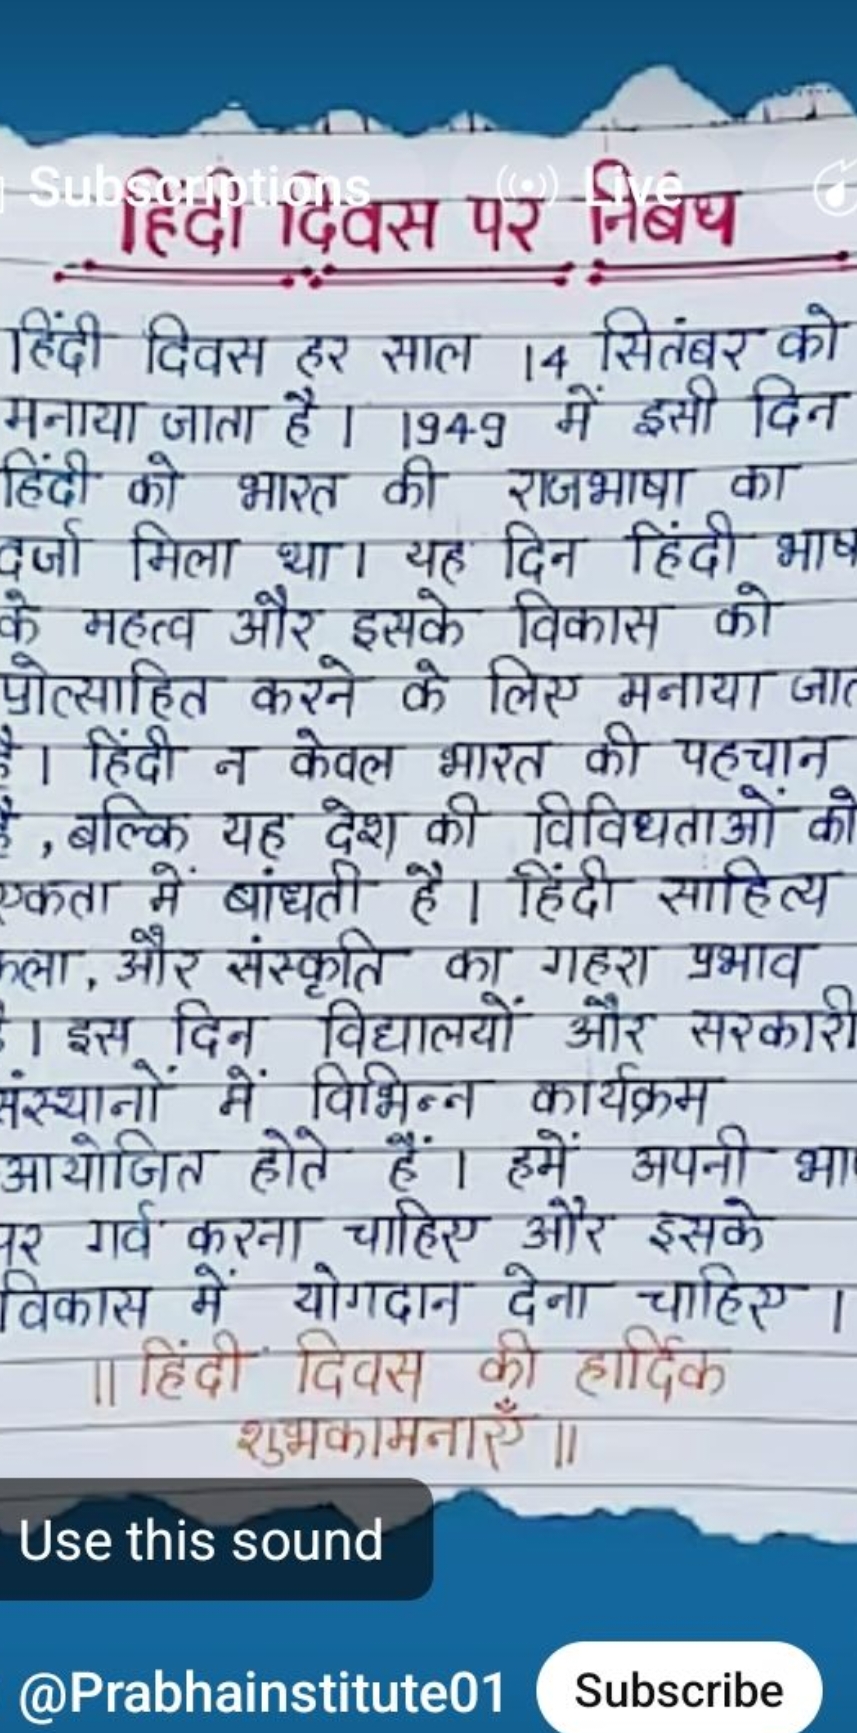 Subscriptions Live
हिंदी दिवस पर निबंध
हिंदी दिवस हर साल 14 सितंबर को
मनाया जाता है। 1949 में इसी दिन
हिंदी को भारत की राजभाषा का
दर्जा मिला था। यह दिन हिंदी भाष
के महत्व और इसके विकास को
प्रोत्साहित करने के लिए मनाया जात
है। हिंदी न केवल भारत की पहचान
है, बल्कि यह देश की विविधताओं को
एकता में बांधती है। हिंदी साहित्य
कला, और संस्कृति का गहरा प्रभाव
है। इस दिन विद्यालयों और सरकारी
संस्थानों में विभिन्न कार्यक्रम
आयोजित होते हैं। हमें अपनी भा
पर गर्व करना चाहिए और इसके
विकास में योगदान देना चाहिए।
॥ हिंदी दिवस की हार्दिक
शुभकामनाएँ ॥
Use this sound
@Prabhainstitute01 Subscribe